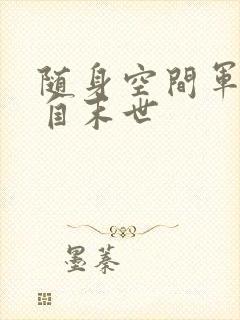 随身空間軍
自末世
墨蓁